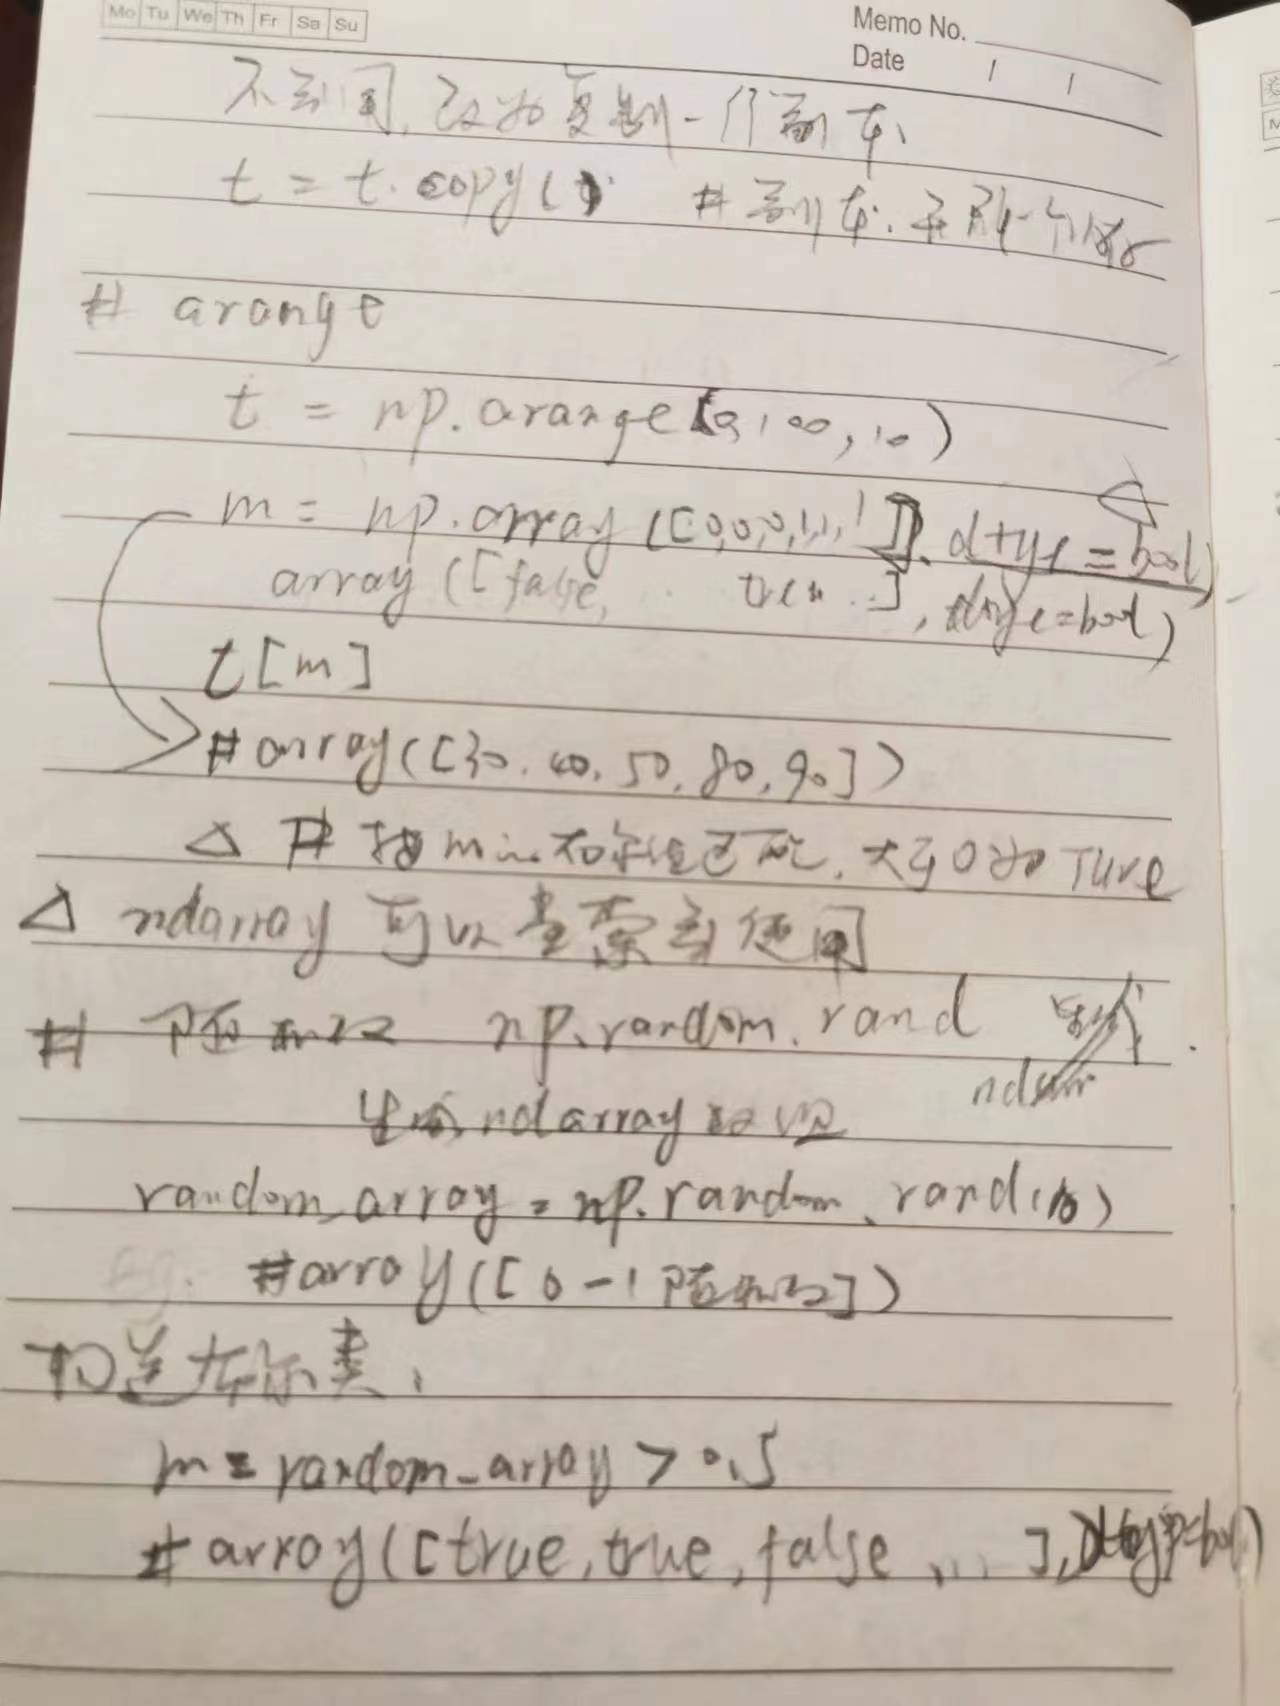 Mo Tu We Th Fr Sa Su
Memo No.
Date / /
不到同, 改为复制一个副本,
t = t.copy() # 副本,
# arange
t = np.arange(0,100,10)
m = np.array([0,0,0,1,1,1 ]), dtype=bool)
array([false, .. ..], dtype=bool)
t[m]
#array([30.40.50.80,90])
△ # 按 匹配. 大于0为 Ture
△ ndarray 可以当索引使用
# 随机数 np.random.rand
生成 ndarray 数组
random_array = np.random.rand(10)
#array([0-1随机数])
构造布尔类,
m = random_array > 0.5
# array([true,true,false,... ], dtype=bool)